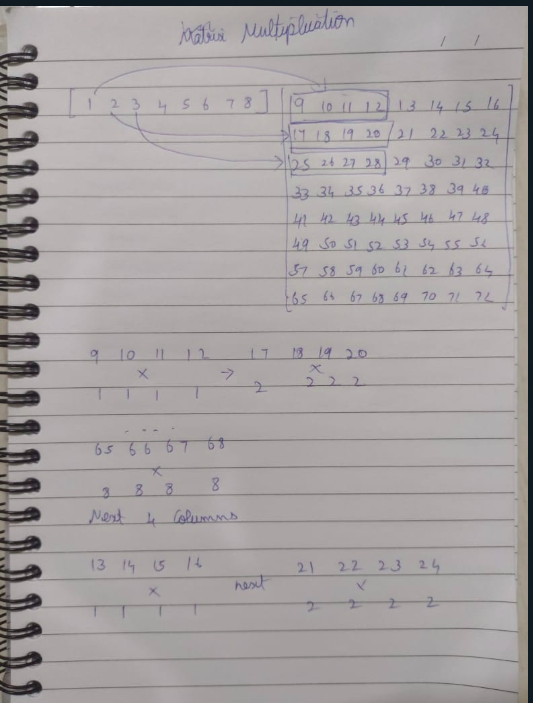 Matrix Multiplication
/ /
[ 1 2 3 4 5 6 7 8 ] [ 9 10 11 12 13 14 15 16
17 18 19 20 21 22 23 24
25 26 27 28 29 30 31 32
33 34 35 36 37 38 39 40
41 42 43 44 45 46 47 48
49 50 51 52 53 54 55 56
57 58 59 60 61 62 63 64
65 66 67 68 69 70 71 72 ]
9 10 11 12 17 18 19 20
× → ×
1 1 1 1 2 2 2 2
- - - -
65 66 67 68
×
8 8 8 8
Next 4 Columns
13 14 15 16 21 22 23 24
× next ×
1 1 1 1 2 2 2 2